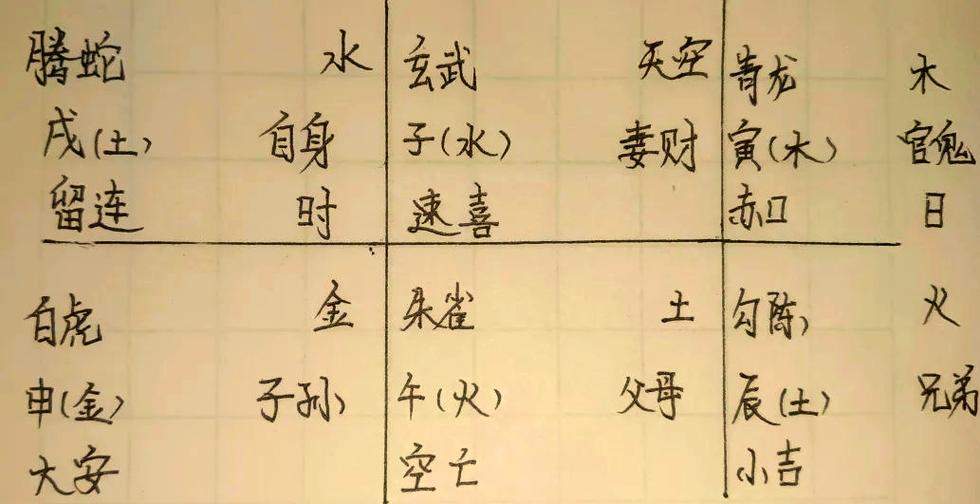 腾蛇 水 玄武 天空 青龙 木
戌(土) 自身 子(水) 妻财 寅(木) 官鬼
留连 时 速喜 赤口 日
白虎 金 朱雀 土 勾陈 火
申(金) 子孙 午(火) 父母 辰(土) 兄弟
大安 空亡 小吉